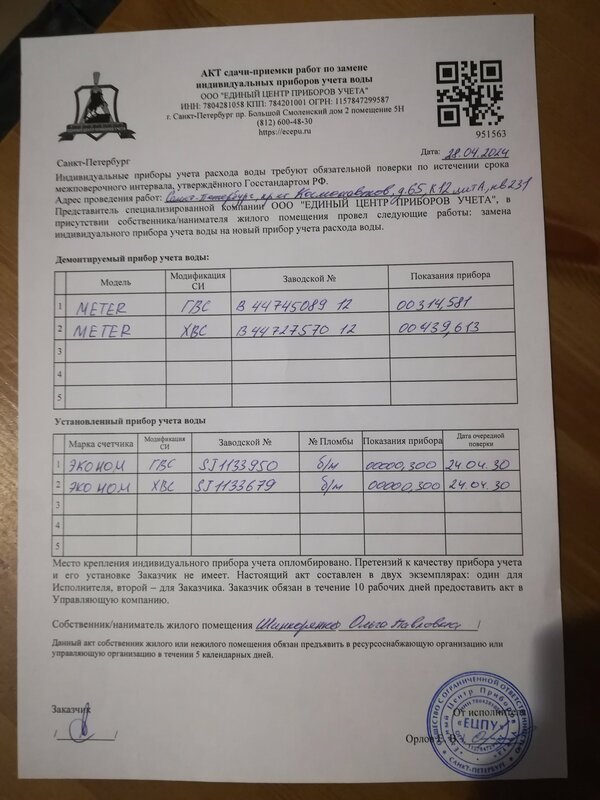 АКТ сдачи-приемки работ по замене
индивидуальных приборов учета воды
ООО "ЕДИНЫЙ ЦЕНТР ПРИБОРОВ УЧЕТА"
ИНН: 7804281058 КПП: 784201001 ОГРН: 1157847299587
г. Санкт-Петербург пр. Большой Смоленский дом 2 помещение 5Н
(812) 600-48-30
https://ecepu.ru
951563
Санкт-Петербург
Дата: 28.04.2024
Индивидуальные приборы учета расхода воды требуют обязательной поверки по истечении срока
межповерочного интервала, утверждённого Госстандартом РФ.
Адрес проведения работ: Санкт-Петербург, пр-кт Космонавтов, д.65, к12 литА, кв 231
Представитель специализированной компании ООО "ЕДИНЫЙ ЦЕНТР ПРИБОРОВ УЧЕТА", в
присутствии собственника/нанимателя жилого помещения провел следующие работы: замена
индивидуального прибора учета воды на новый прибор учета расхода воды.
Демонтируемый прибор учета воды:
Модель Модификация СИ Заводской № Показания прибора
1 METER ГВС В 44745089 12 00314,581
2 METER ХВС В 44727570 12 00439,613
3
4
5
Установленный прибор учета воды
Марка счетчика Модификация СИ Заводской № № Пломбы Показания прибора Дата очередной поверки
1 ЭКОНОМ ГВС SJ1133950 б/м 00000,300 24.04.30
2 ЭКОНОМ ХВС SJ1133679 б/м 00000,300 24.04.30
3
4
5
Место крепления индивидуального прибора учета опломбировано. Претензий к качеству прибора учета
и его установке Заказчик не имеет. Настоящий акт составлен в двух экземплярах: один для
Исполнителя, второй – для Заказчика. Заказчик обязан в течение 10 рабочих дней предоставить акт в
Управляющую компанию.
Собственник/наниматель жилого помещения Шинкоренко Ольга Павловна /
Данный акт собственник жилого или нежилого помещения обязан предъявить в ресурсоснабжающую организацию или
управляющую организацию в течении 5 календарных дней.
Заказчик
От исполнителя
/ /
Орлов Е. В.
ОБЩЕСТВО С ОГРАНИЧЕННОЙ ОТВЕТСТВЕННОСТЬЮ
"ЕЦПУ"
САНКТ-ПЕТЕРБУРГ